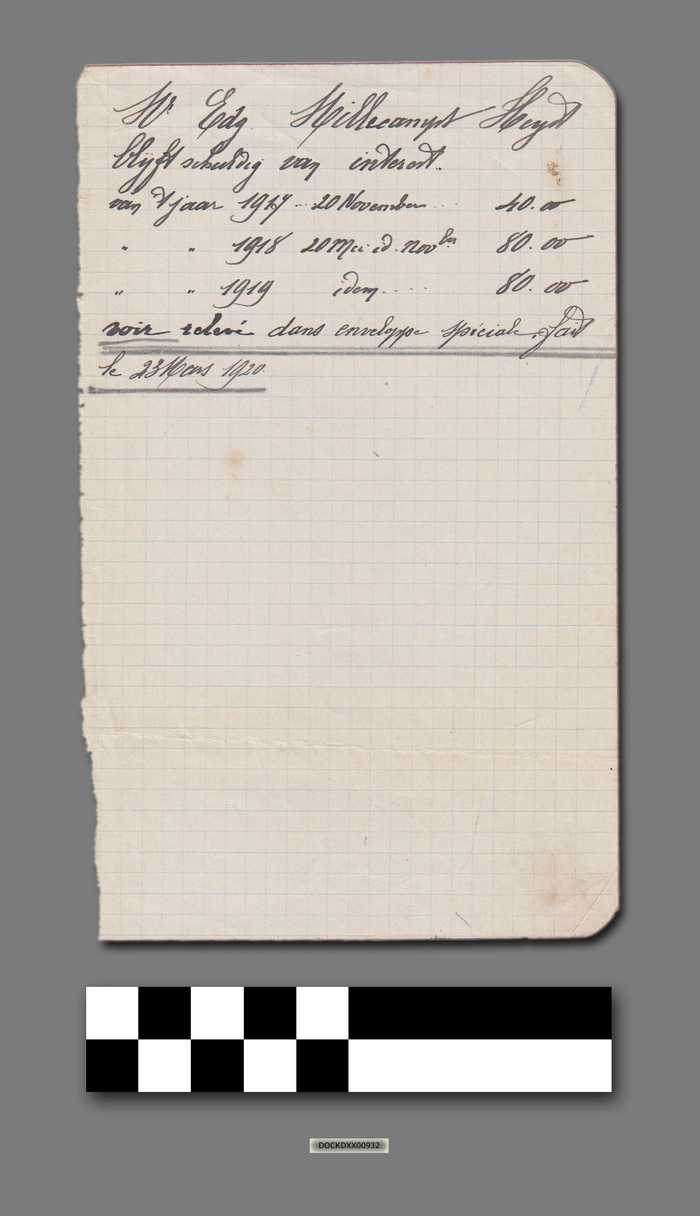 Mr Edg. Millecampt Heyst
blijft schuldig van interest.
van 't jaar 1917 .. 20 November ... 40.00
" " 1918 20 Mei id. novber 80.00
" " 1919 idem ..... 80.00
voir relevé dans enveloppe spéciale. fait
le 23 Mars 1920.
DOCKDXX00932